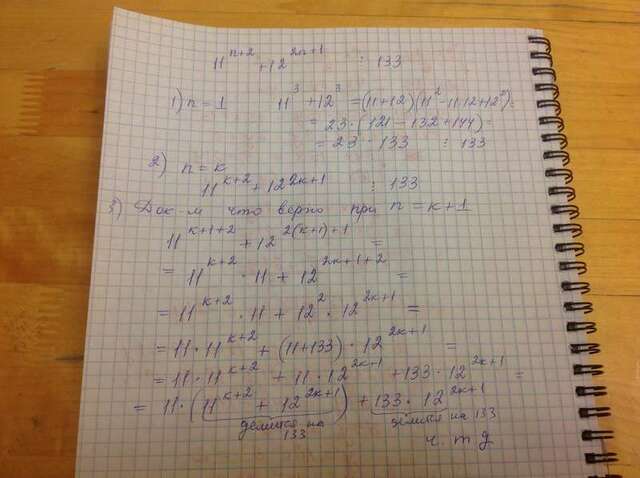 11^(n+2) + 12^(2n+1) ⋮ 133
1) n = 1 11³ + 12³ = (11+12)(11² - 11·12 + 12²) =
= 23·(121 - 132 + 144) =
= 23 · 133 ⋮ 133
2) n = k
11^(k+2) + 12^(2k+1) ⋮ 133
3) Док-м что верно при n = k+1
11^(k+1+2) + 12^(2(k+1)+1) =
= 11^(k+2) · 11 + 12^(2k+1+2) =
= 11^(k+2) · 11 + 12² · 12^(2k+1) =
= 11 · 11^(k+2) + (11+133) · 12^(2k+1) =
= 11 · 11^(k+2) + 11 · 12^(2k+1) + 133 · 12^(2k+1) =
= 11 · (11^(k+2) + 12^(2k+1)) + 133 · 12^(2k+1)
делится на 133 делится на 133
ч. т д